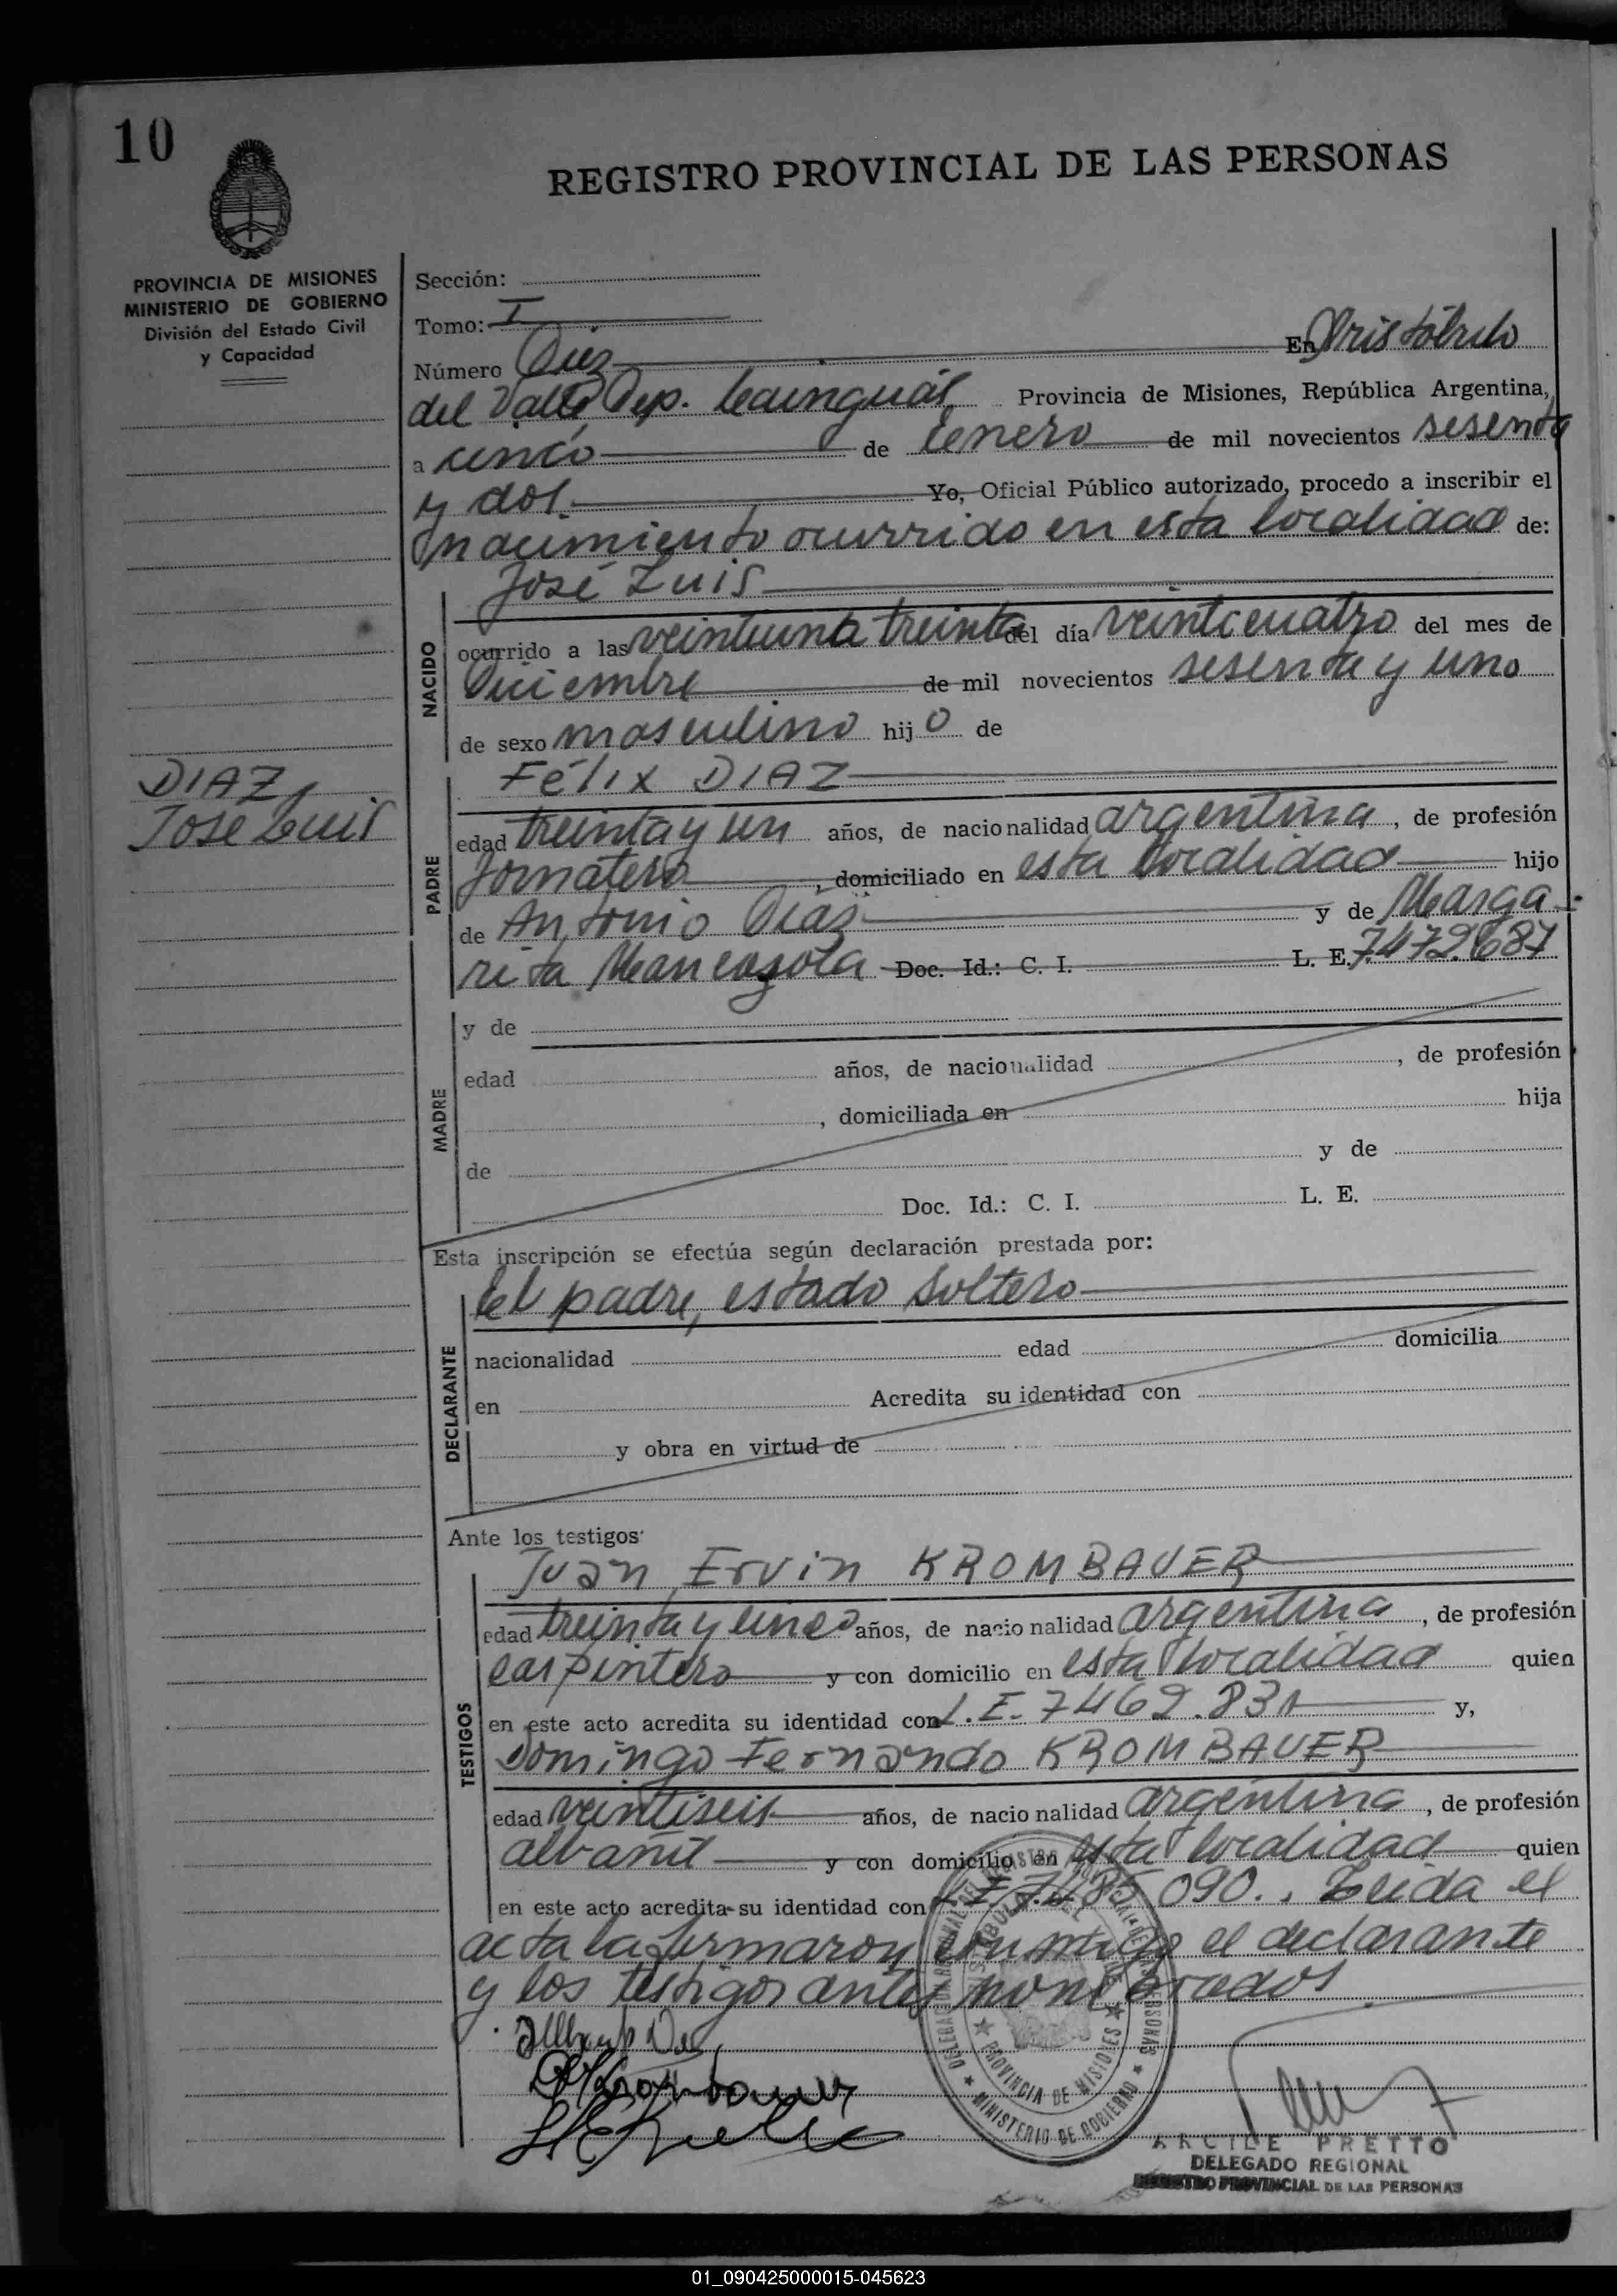 10
REGISTRO PROVINCIAL DE LAS PERSONAS
PROVINCIA DE MISIONES
MINISTERIO DE GOBIERNO
División del Estado Civil
y Capacidad
Sección:
Tomo: I
Número Diez En Aristóbulo
del Valle, Dep. Cainguás, Provincia de Misiones, República Argentina,
a cinco de Enero de mil novecientos sesenta
y dos. Yo, Oficial Público autorizado, procedo a inscribir el
nacimiento ocurrido en esta localidad de:
José Luis
NACIDO
ocurrido a las veintiuna treinta del día veinticuatro del mes de
Diciembre de mil novecientos sesenta y uno
de sexo masculino hijo de
DIAZ,
José Luis
PADRE
Félix DIAZ
edad treinta y un años, de nacionalidad argentina, de profesión
Jornatero, domiciliado en esta localidad hijo
de Antonio Díaz y de Marga-
rita Doc. Id.: C. I. L. E. 7472.687
MADRE
y de
edad años, de nacionalidad , de profesión
, domiciliada en hija
de y de
Doc. Id.: C. I. L. E.
Esta inscripción se efectúa según declaración prestada por:
DECLARANTE
El padre, estado soltero
nacionalidad edad domicilia
en Acredita su identidad con
y obra en virtud de
Ante los testigos
TESTIGOS
Juan Ervin KROMBAUER
edad treinta y cinco años, de nacionalidad argentina, de profesión
carpintero y con domicilio en esta localidad quien
en este acto acredita su identidad con L.E. 7462.831 y,
Domingo Fernando KROMBAUER
edad veintiseis años, de nacionalidad argentina, de profesión
albañil y con domicilio en esta localidad quien
en este acto acredita su identidad con L.E. 7.485.090.. Leida el
acta la firmaron conmigo el declarante
y los testigos antes nombrados.
PROVINCIA DE MISIONES
MINISTERIO DE GOBIERNO
ARCILE PRETTO
DELEGADO REGIONAL
REGISTRO PROVINCIAL DE LAS PERSONAS
01_090425000015-045623